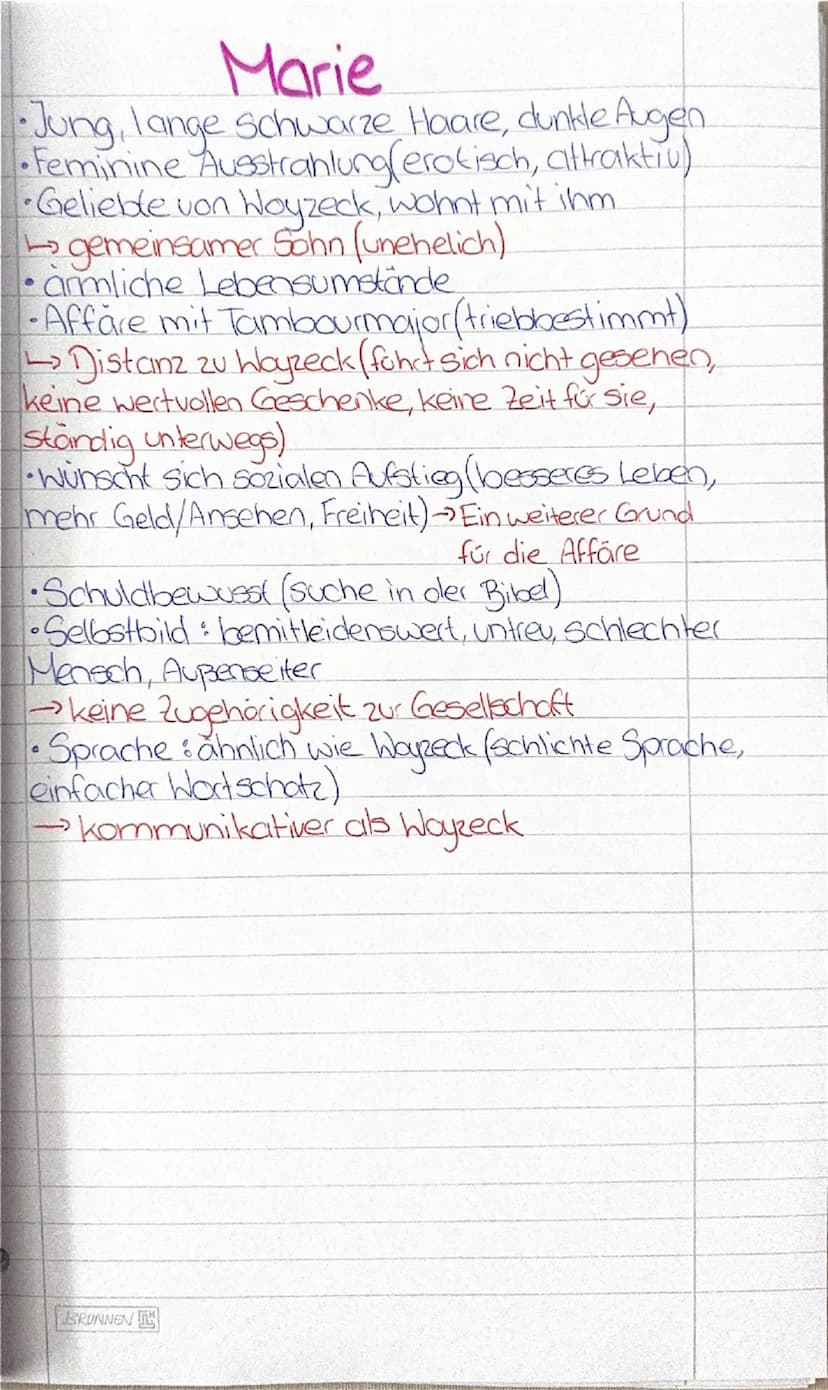 Marie
• Jung, lange schwarze Haare, dunkle Augen
• Feminine Ausstrahlung (erotisch, attraktiv)
• Geliebte von Woyzeck, wohnt mit ihm
↳ gemeinsamer Sohn (unehelich)
• ärmliche Lebensumstände
• Affäre mit Tambourmajor (triebbestimmt)
↳ Distanz zu Woyzeck (fühlt sich nicht gesehen,
keine wertvollen Geschenke, keine Zeit für sie,
ständig unterwegs)
• wünscht sich sozialen Aufstieg (besseres Leben,
mehr Geld/Ansehen, Freiheit) → Ein weiterer Grund
für die Affäre
• Schuldbewusst (suche in der Bibel)
• Selbstbild : bemitleidenswert, untreu, schlechter
Mensch, Außenseiter
→ keine Zugehörigkeit zur Gesellschaft
• Sprache : ähnlich wie Woyzeck (schlichte Sprache,
einfacher Wortschatz)
→ kommunikativer als Woyzeck
BRUNNEN